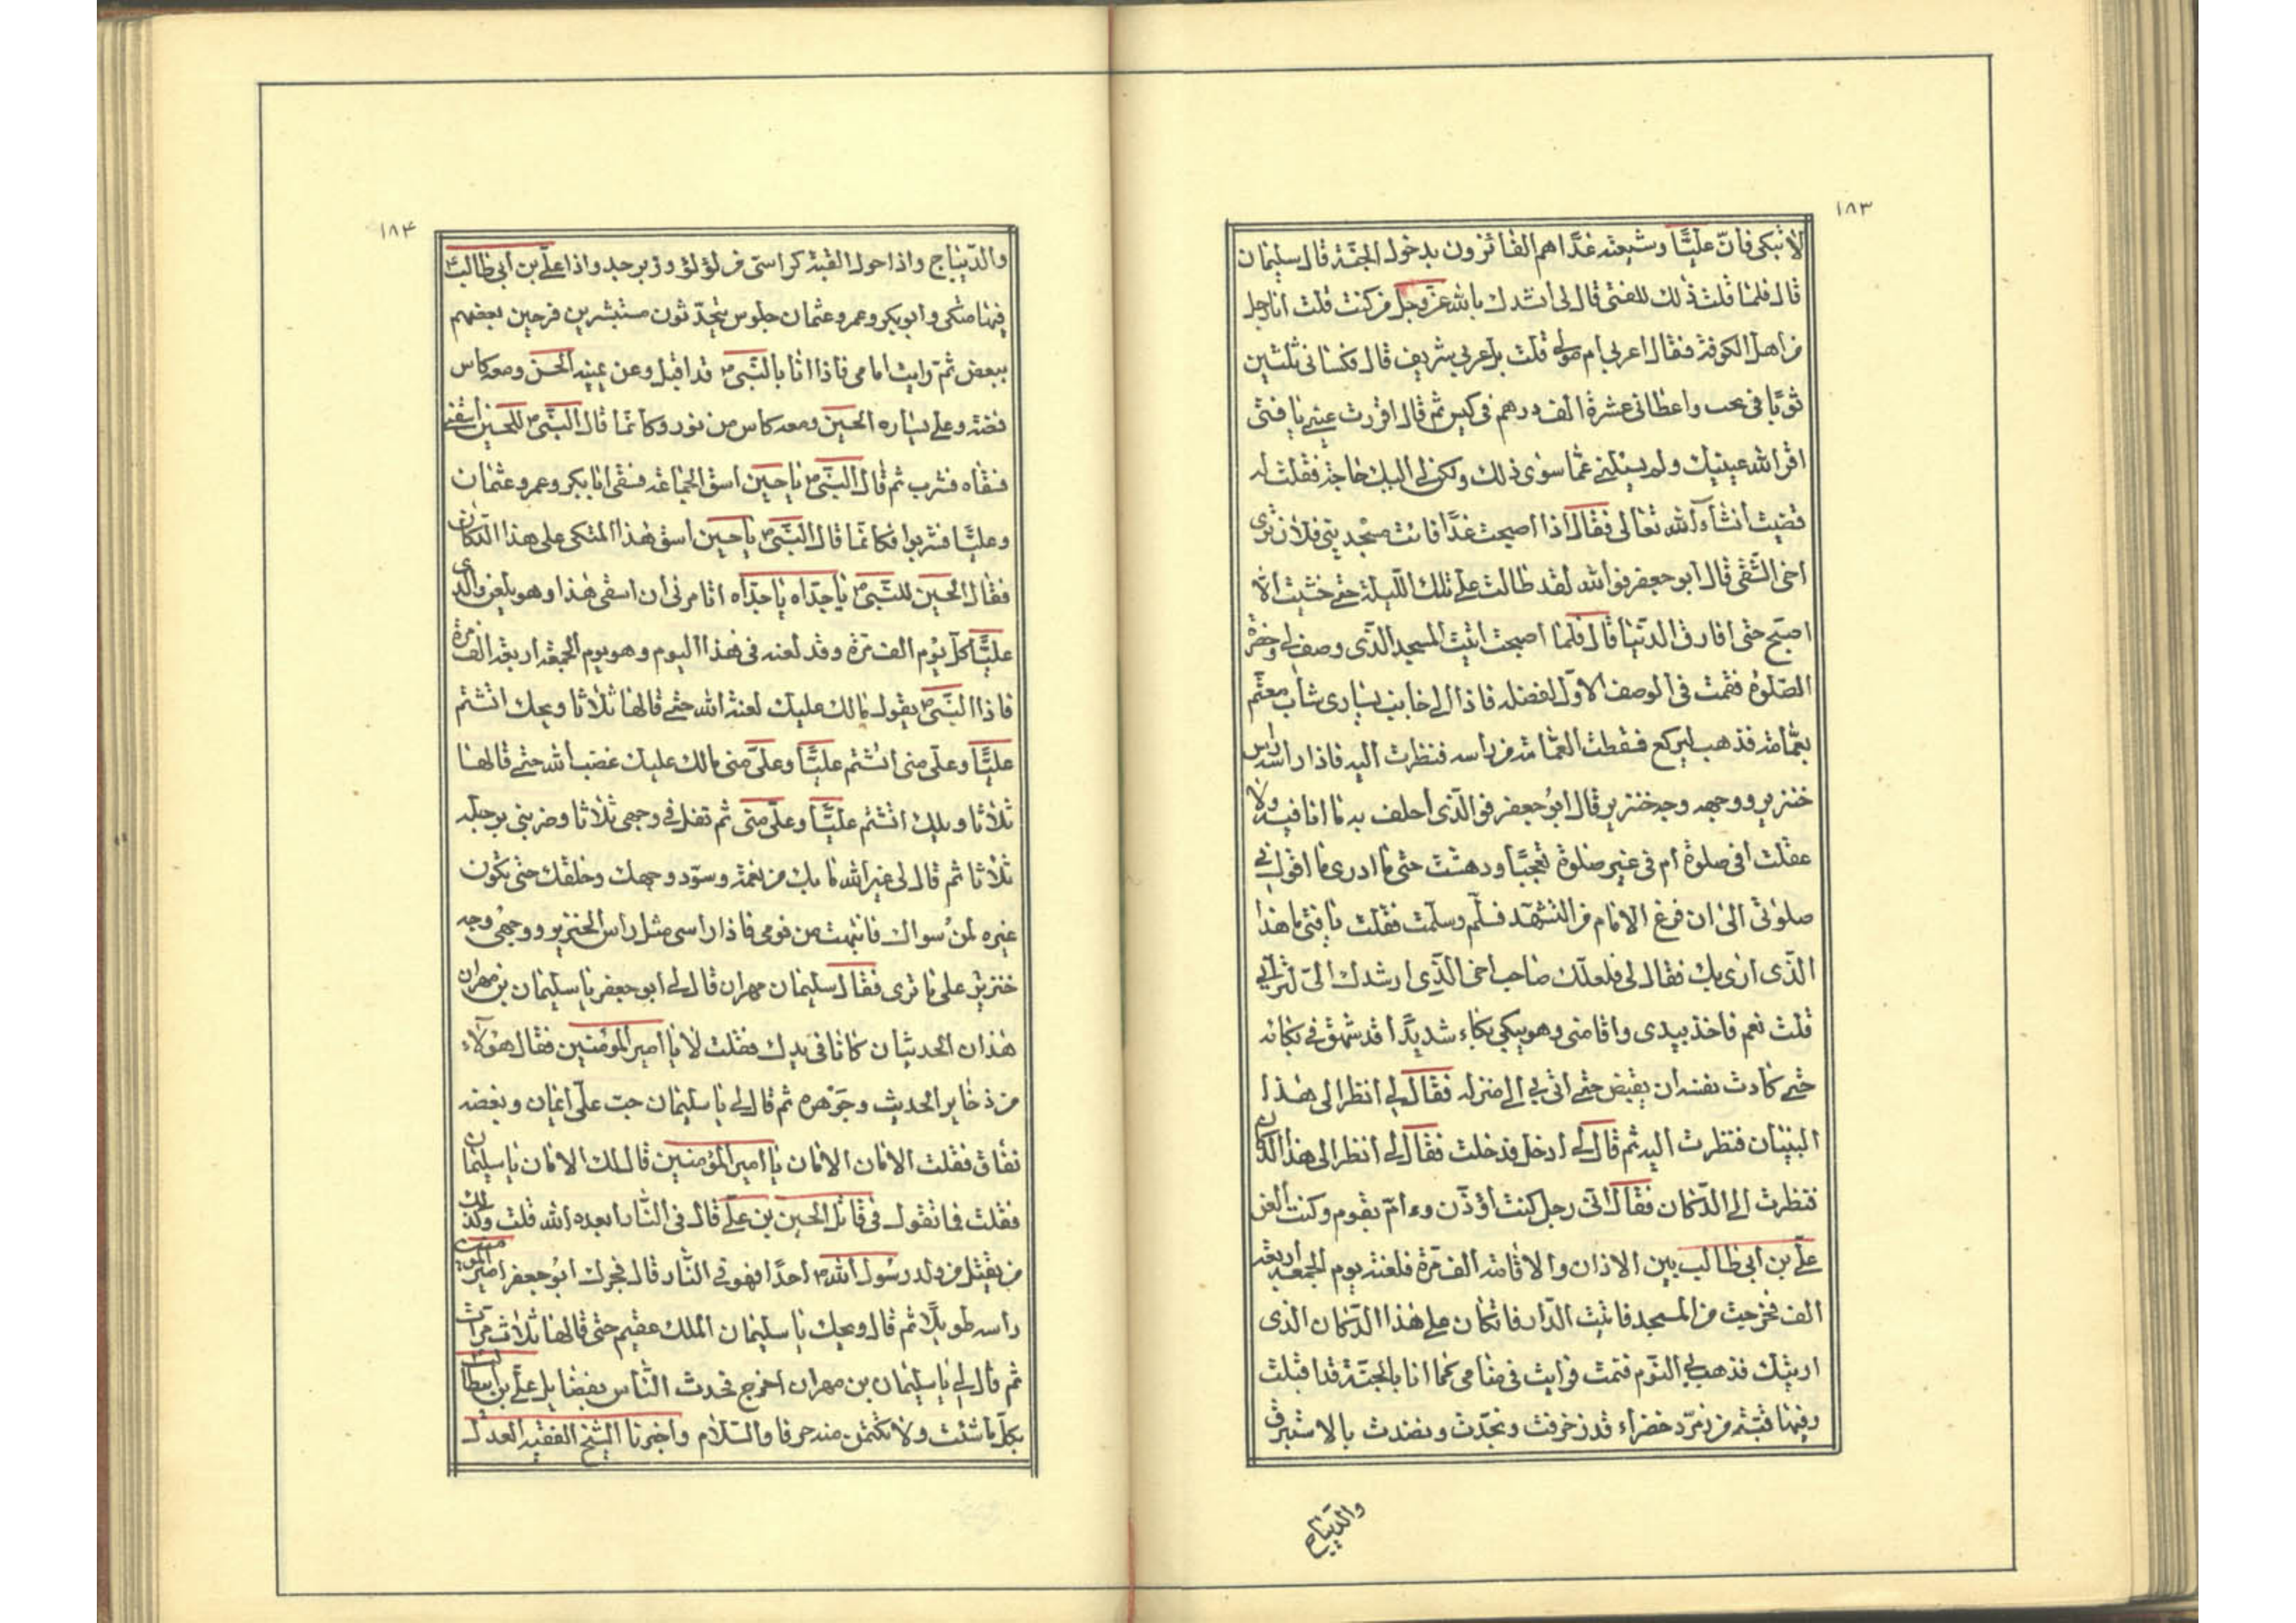 ١٨٣
لا تبكى فانّ عليّاً وشيعته غدًا هم الفائزون بدخول الجنّة قال سليمان
قال فلمّا قلت ذلك للفتى قال لى انشدك بالله عزّ وجلّ من كنت قلت انا رجل
من اهل الكوفة فقال اعربى ام مولى قلت بل عربى شريف قال فكسانى ثلثين
ثوبًا فى تخت واعطانى عشرة الف درهم فى كيس ثم قال اقررت عينى يا فتى
اقر الله عينيك ولم يسئلنى عمّا سوى ذلك ولكن لى اليك حاجة فقلت له
قضيت انشاء الله تعالى فقال اذا اصبحت غدًا فائت مسجد بنى فلان ترى
اخى الشقى قال ابو جعفر فوالله لقد طالت علىّ تلك الليلة حتى خشيت الّا
اصبح حتى افارق الدنيا قال فلمّا اصبحت اتيت المسجد الّذى وصف لى وحضرة
الصّلوة فقمت فى الوصف الاوّل لفضله فاذا الى جانب يسارى شاب معتّم
بعمّامة فذهب ليركع فسقطت العمّامة من راسه فنظرت اليه فاذا راسه راس
خنزير ووجهه وجه خنزير قال ابو جعفر فوالّذى احلف به ما انا فيه ولا
عقلت افى صلوة ام فى غير صلوة تعجبًا ودهشت حتى ما ادرى ما اقول فى
صلوتى الى ان فرغ الامام من التشهّد فسلّم وسلمت فقلت يا فتى ما هذا
الّذى ارى بك فقال لى فلعلّك صاحب اخى الّذى ارشدك الىّ لترانى
قلت نعم فاخذ بيدى واقامنى وهو يبكى بكاء شديدًا قد شهق فى بكائه
حتى كادت نفسه ان يقبض حتى اتى بى الى منزله فقال لى انظر الى هذا
البنيان فنظرت اليه ثم قال لى ادخل فدخلت فقال لى انظر الى هذا الدكان
فنظرت الى الدّكان فقال انى رجل كنت اؤذّن وءامّ بقوم وكنت العن
علىّ بن ابى طالب بين الاذان والاقامة الف مرّة فلعنته يوم الجمعة اربعة
الف فخرجت من المسجد فاتيت الدّار فاتكان على هذا الدّكان الذى
اريتك فذهب بى النّوم فنمت فرايت فى منامى كما انا بالجنّة قد اقبلت
وفيها قبّته من زمرّد خضراء قد زخرفت ونجّدت ونضدت بالاستبرق
والدّيباج
١٨۴
والدّيباج واذا حول القبة كراسىّ من لؤلؤ وزبرجد واذا علىّ بن ابى طالب
فيها متكى وابو بكر وعمر وعثمان جلوس يتحدّثون مستبشرين فرحين بعضهم
ببعض ثمّ رايت امامى فاذا انا بالنّبىّ ص قد اقبل وعن يمينه الحسن ومعه كاس
فضة وعلى يساره الحسين ومعه كاس من نور وكانّما قال النبّى ص للحسين اسقنى
فسقاه فشرب ثم قال النّبىّ ص يا حسين اسق الجماعة فسقى ابا بكر وعمر وعثمان
وعليًّا فشربوا فكانّما قال النّبىّ ص يا حسين اسق هذا المتكى على هذا الدّكان
فقال الحسين للنّبىّ ص يا جدّاه يا جدّاه اتامرنى ان اسقى هذا وهو يلعن والدى
عليًّا كل يوم الف مرّة وقد لعنه فى هذا اليوم وهو يوم الجمعة اربعة الف مرة
فاذا النّبىّ ص يقول مالك عليك لعنة الله حتى قالها ثلاثا ويحك اتشتم
عليًّا وعلىّ منى اتشتم عليًّا وعلىّ منى مالك عليك غضب الله حتى قالها
ثلاثا ويلك اتشتم عليًّا وعلىّ منى ثم تفل فى وجهى ثلاثا وضربنى برجله
ثلاثا ثم قال لى غير الله ما بك من نعمة وسوّد وجهك وخلقك حتى تكون
عبره لمن سواك فانتبهت من نومى فاذا راسى مثل راس الخنزير ووجهى وجه
خنزير على ما ترى فقال سليمان مهران قال لى ابو جعفر يا سليمان بن مهران
هذان الحديثان كانا فى يدك فقلت لا يا امير المؤمنين فقال هؤلاء
من ذخاير الحديث وجوهره ثم قال لى يا سليمان حبّ علىّ ايمان وبغضه
نفاق فقلت الامان الامان يا امير المؤمنين قال لك الامان يا سليمان
فقلت فما تقول فى قاتل الحسين بن علىّ قال فى النّار ابعده الله قلت وكذلك
من يقتل من ولد رسول الله ص احدًا فهو فى النّار قال فحرك ابو جعفر امير المؤمنين
راسه طويلًا ثم قال ويحك يا سليمان الملك عقيم حتى قالها ثلاث مرّات
ثم قال لى يا سليمان بن مهران اخرج فحدث النّاس بفضايل علىّ بن ابيطالب
بكل ما شئت ولا تكتمن منه حرفا والسّلام واخبرنا الشيخ الفقيه العدل